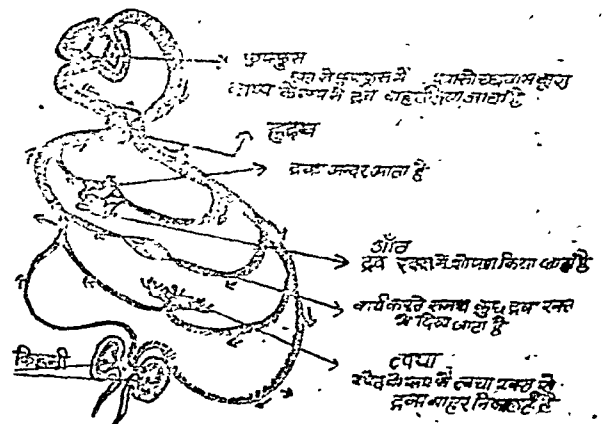 फुफ्फुस
फुफ्फुस में श्वासोच्छवास द्वारा
वाष्प के रूप में द्रव बाहर किया जाता है
हृदय
द्रव अन्दर आता है
आँत
द्रव रक्त में शोषण किया जाता है
कार्य करते समय कुछ द्रव रक्त
दिया जाता है
त्वचा
के रूप में त्वचा रक्त से
द्रव बाहर निकालते है
किडनी